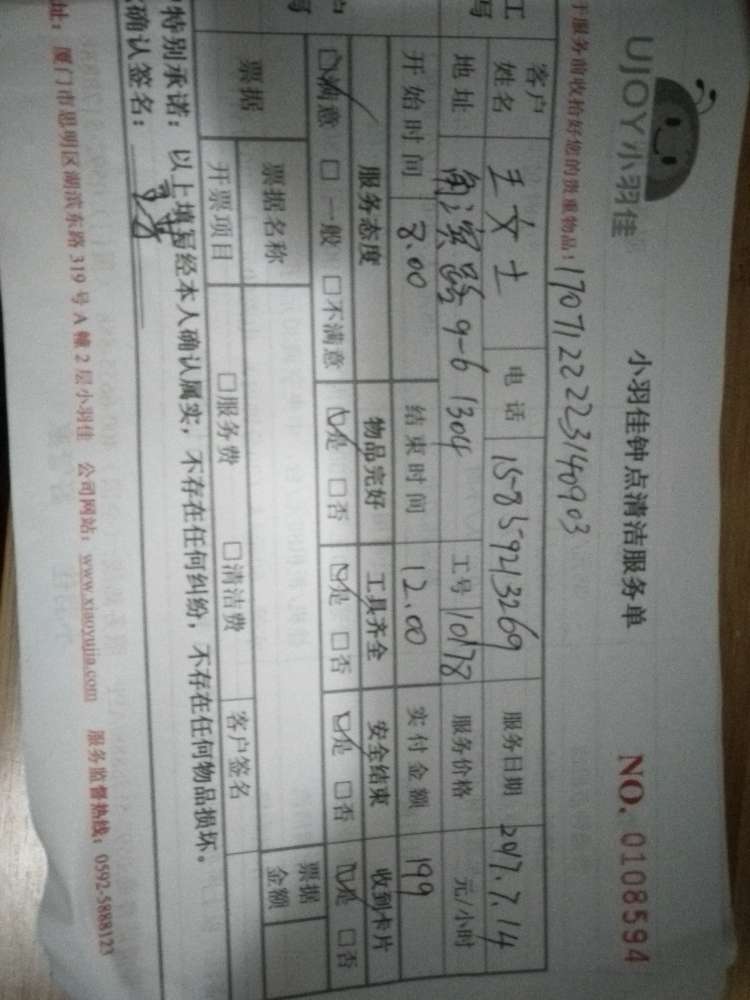 UJOY 小羽佳
小羽佳钟点清洁服务单
NO. 0108594
于服务前收拾好您的贵重物品!
170712223140903
客户姓名 王女士 电话 15859213269 服务日期 2017.7.14
地址 湖滨路 9-6 1304 工号 10178 服务价格 元/小时
开始时间 8.00 结束时间 12.00 实付金额 199
服务态度 物品完好 工具齐全 安全结束 收到卡片
☑满意 □一般 □不满意 ☑是 □否 ☑是 □否 ☑是 □否 ☑是 □否
票据 票据名称 票据金额
开票项目 □服务费 □清洁费 客户签名
特别承诺:以上填写经本人确认属实,不存在任何纠纷,不存在任何物品损坏。
确认签名:
址:厦门市思明区湖滨东路 319 号 A 幢 2 层小羽佳 公司网站:www.xiaoyujia.com 服务监督热线:0592-5888123